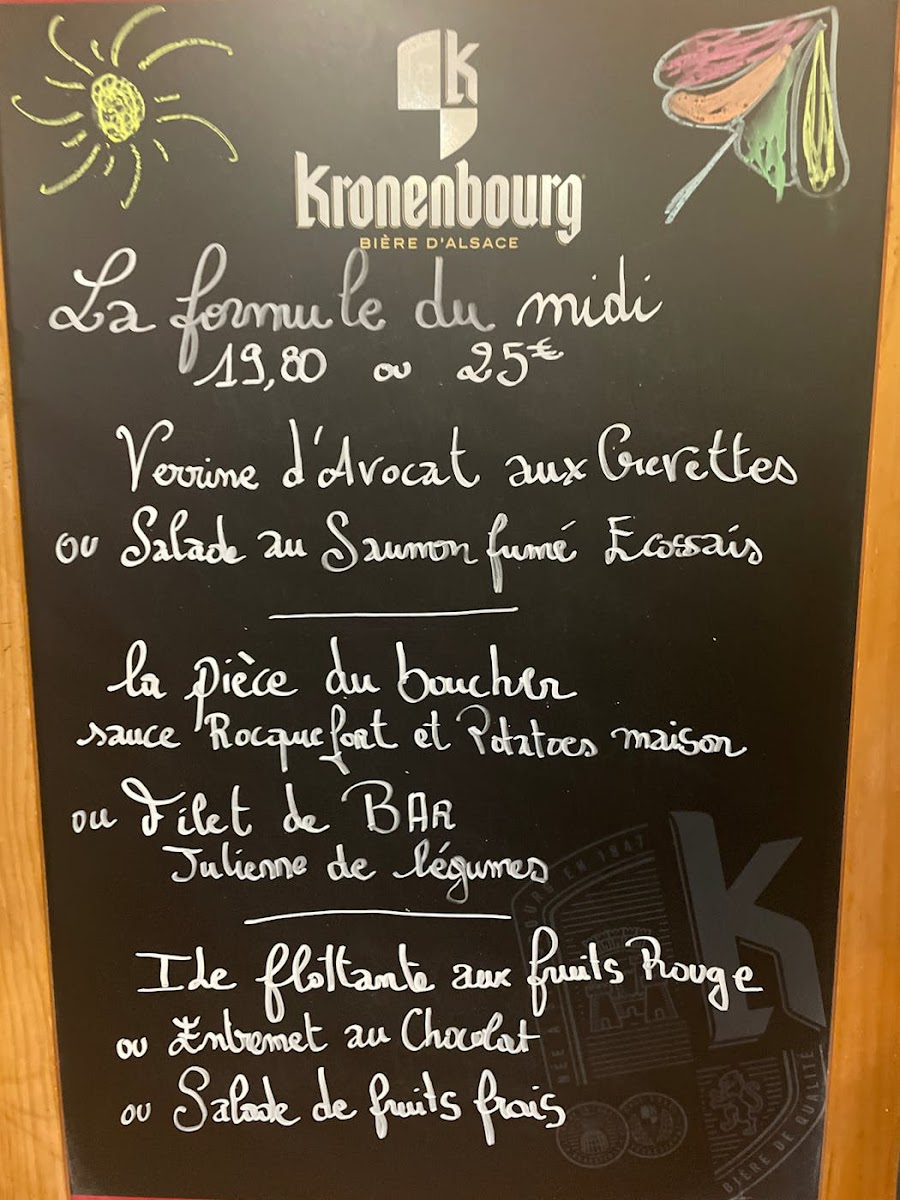 K
Kronenbourg
BIÈRE D'ALSACE
La formule du midi
19,80 ou 25€
Verrine d'Avocat aux Crevettes
ou Salade au Saumon fumé Ecossais
la pièce du boucher
sauce Rocquefort et Potatoes maison
ou Filet de BAR
Julienne de légumes
Ile flottante aux fruits Rouge
ou Entremet au Chocolat
ou Salade de fruits frais
K
BIÈRE DE QUALITÉ